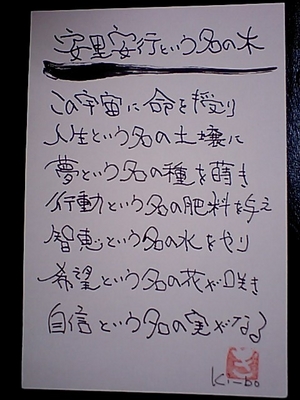 安里安行という名の木
この宇宙に命を授り
人生という名の土壌に
夢という名の種を蒔き
行動という名の肥料を与え
智恵という名の水をやり
希望という名の花が咲き
自信という名の実がなる
Ki-bo